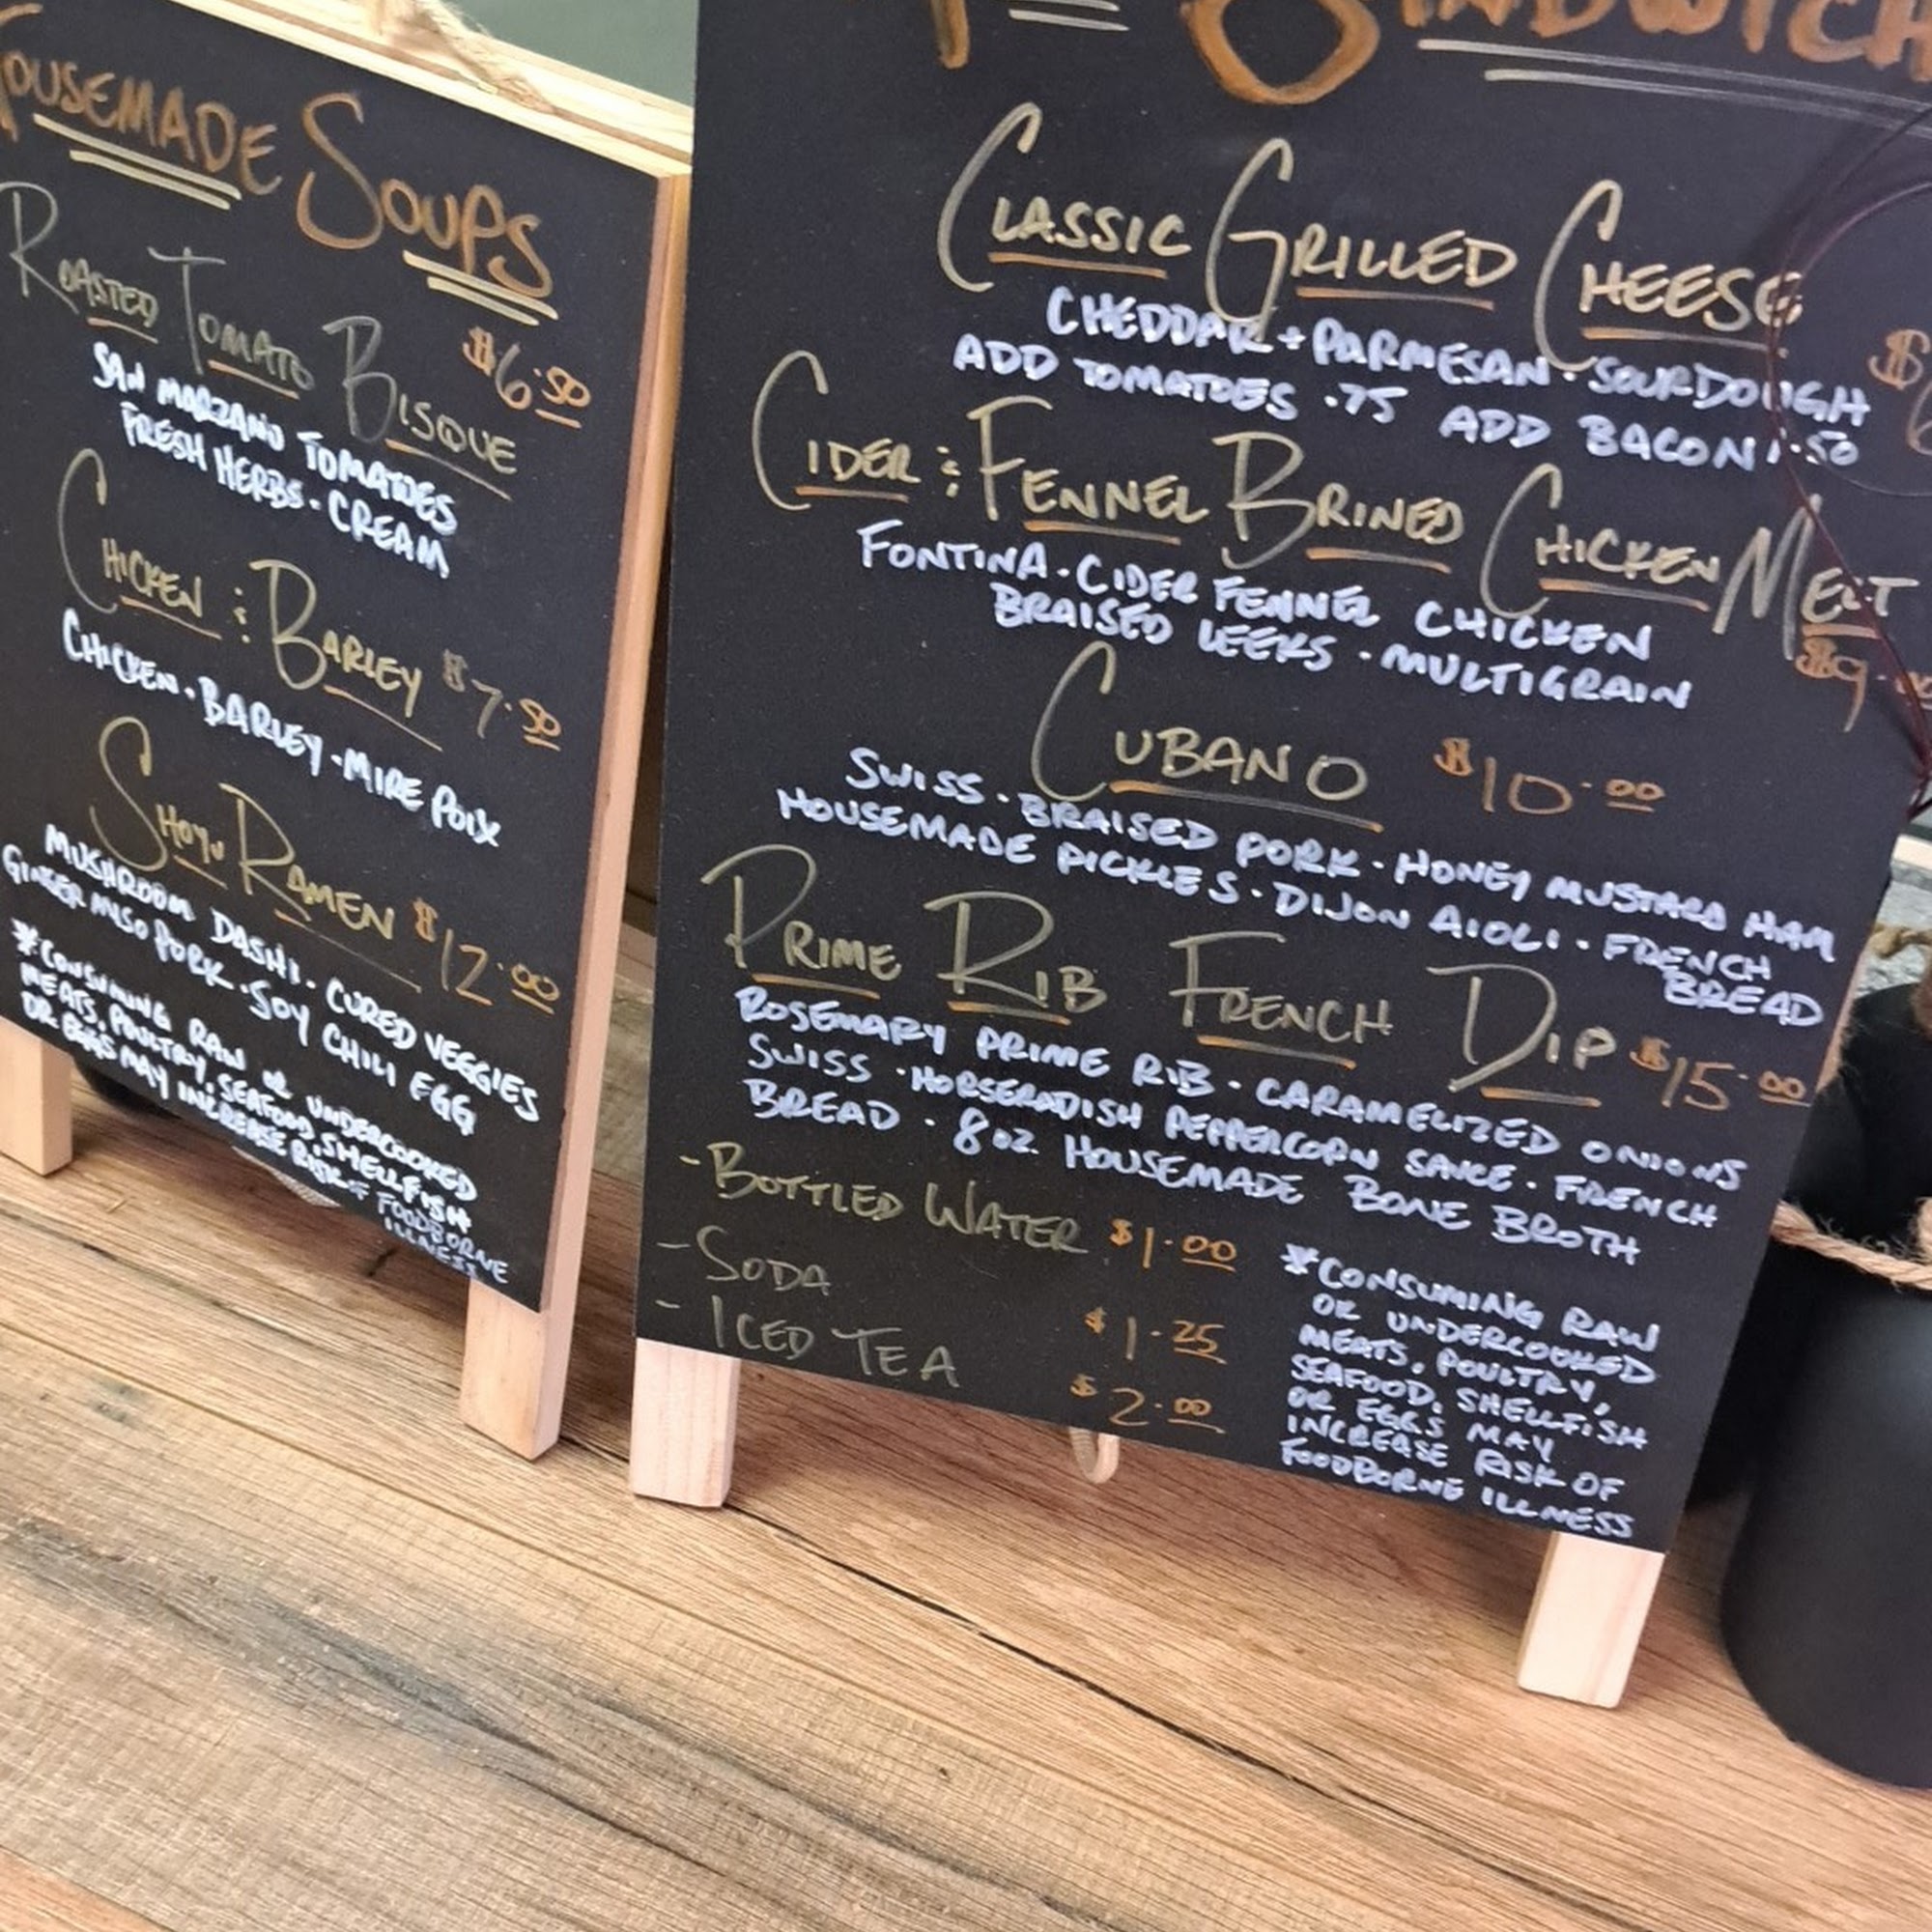 HOUSEMADE SOUPS
ROASTED TOMATO BISQUE $6.50
SAN MARZANO TOMATOES
FRESH HERBS · CREAM
CHICKEN & BARLEY $7.50
CHICKEN · BARLEY · MIRE POIX
SHOYU RAMEN $12.00
MUSHROOM DASHI · CURED VEGGIES
GINGER MISO PORK · SOY CHILI EGG
*CONSUMING RAW OR UNDERCOOKED
MEATS, POULTRY, SEAFOOD, SHELLFISH
OR EGGS MAY INCREASE RISK OF FOODBORNE
ILLNESS
CLASSIC GRILLED CHEESE
CHEDDAR + PARMESAN · SOURDOUGH
ADD TOMATOES .75 ADD BACON 1.50
CIDER & FENNEL BRINED CHICKEN MELT
FONTINA · CIDER FENNEL CHICKEN
BRAISED LEEKS · MULTIGRAIN
CUBANO $10.00
SWISS · BRAISED PORK · HONEY MUSTARD HAM
HOUSEMADE PICKLES · DIJON AIOLI · FRENCH
BREAD
PRIME RIB FRENCH DIP $15.00
ROSEMARY PRIME RIB · CARAMELIZED ONIONS
SWISS · HORSERADISH PEPPERCORN SAUCE · FRENCH
BREAD · 8 OZ. HOUSEMADE BONE BROTH
- BOTTLED WATER $1.00
- SODA $1.25
- ICED TEA $2.00
*CONSUMING RAW
OR UNDERCOOKED
MEATS, POULTRY,
SEAFOOD, SHELLFISH
OR EGGS MAY
INCREASE RISK OF
FOODBORNE ILLNESS